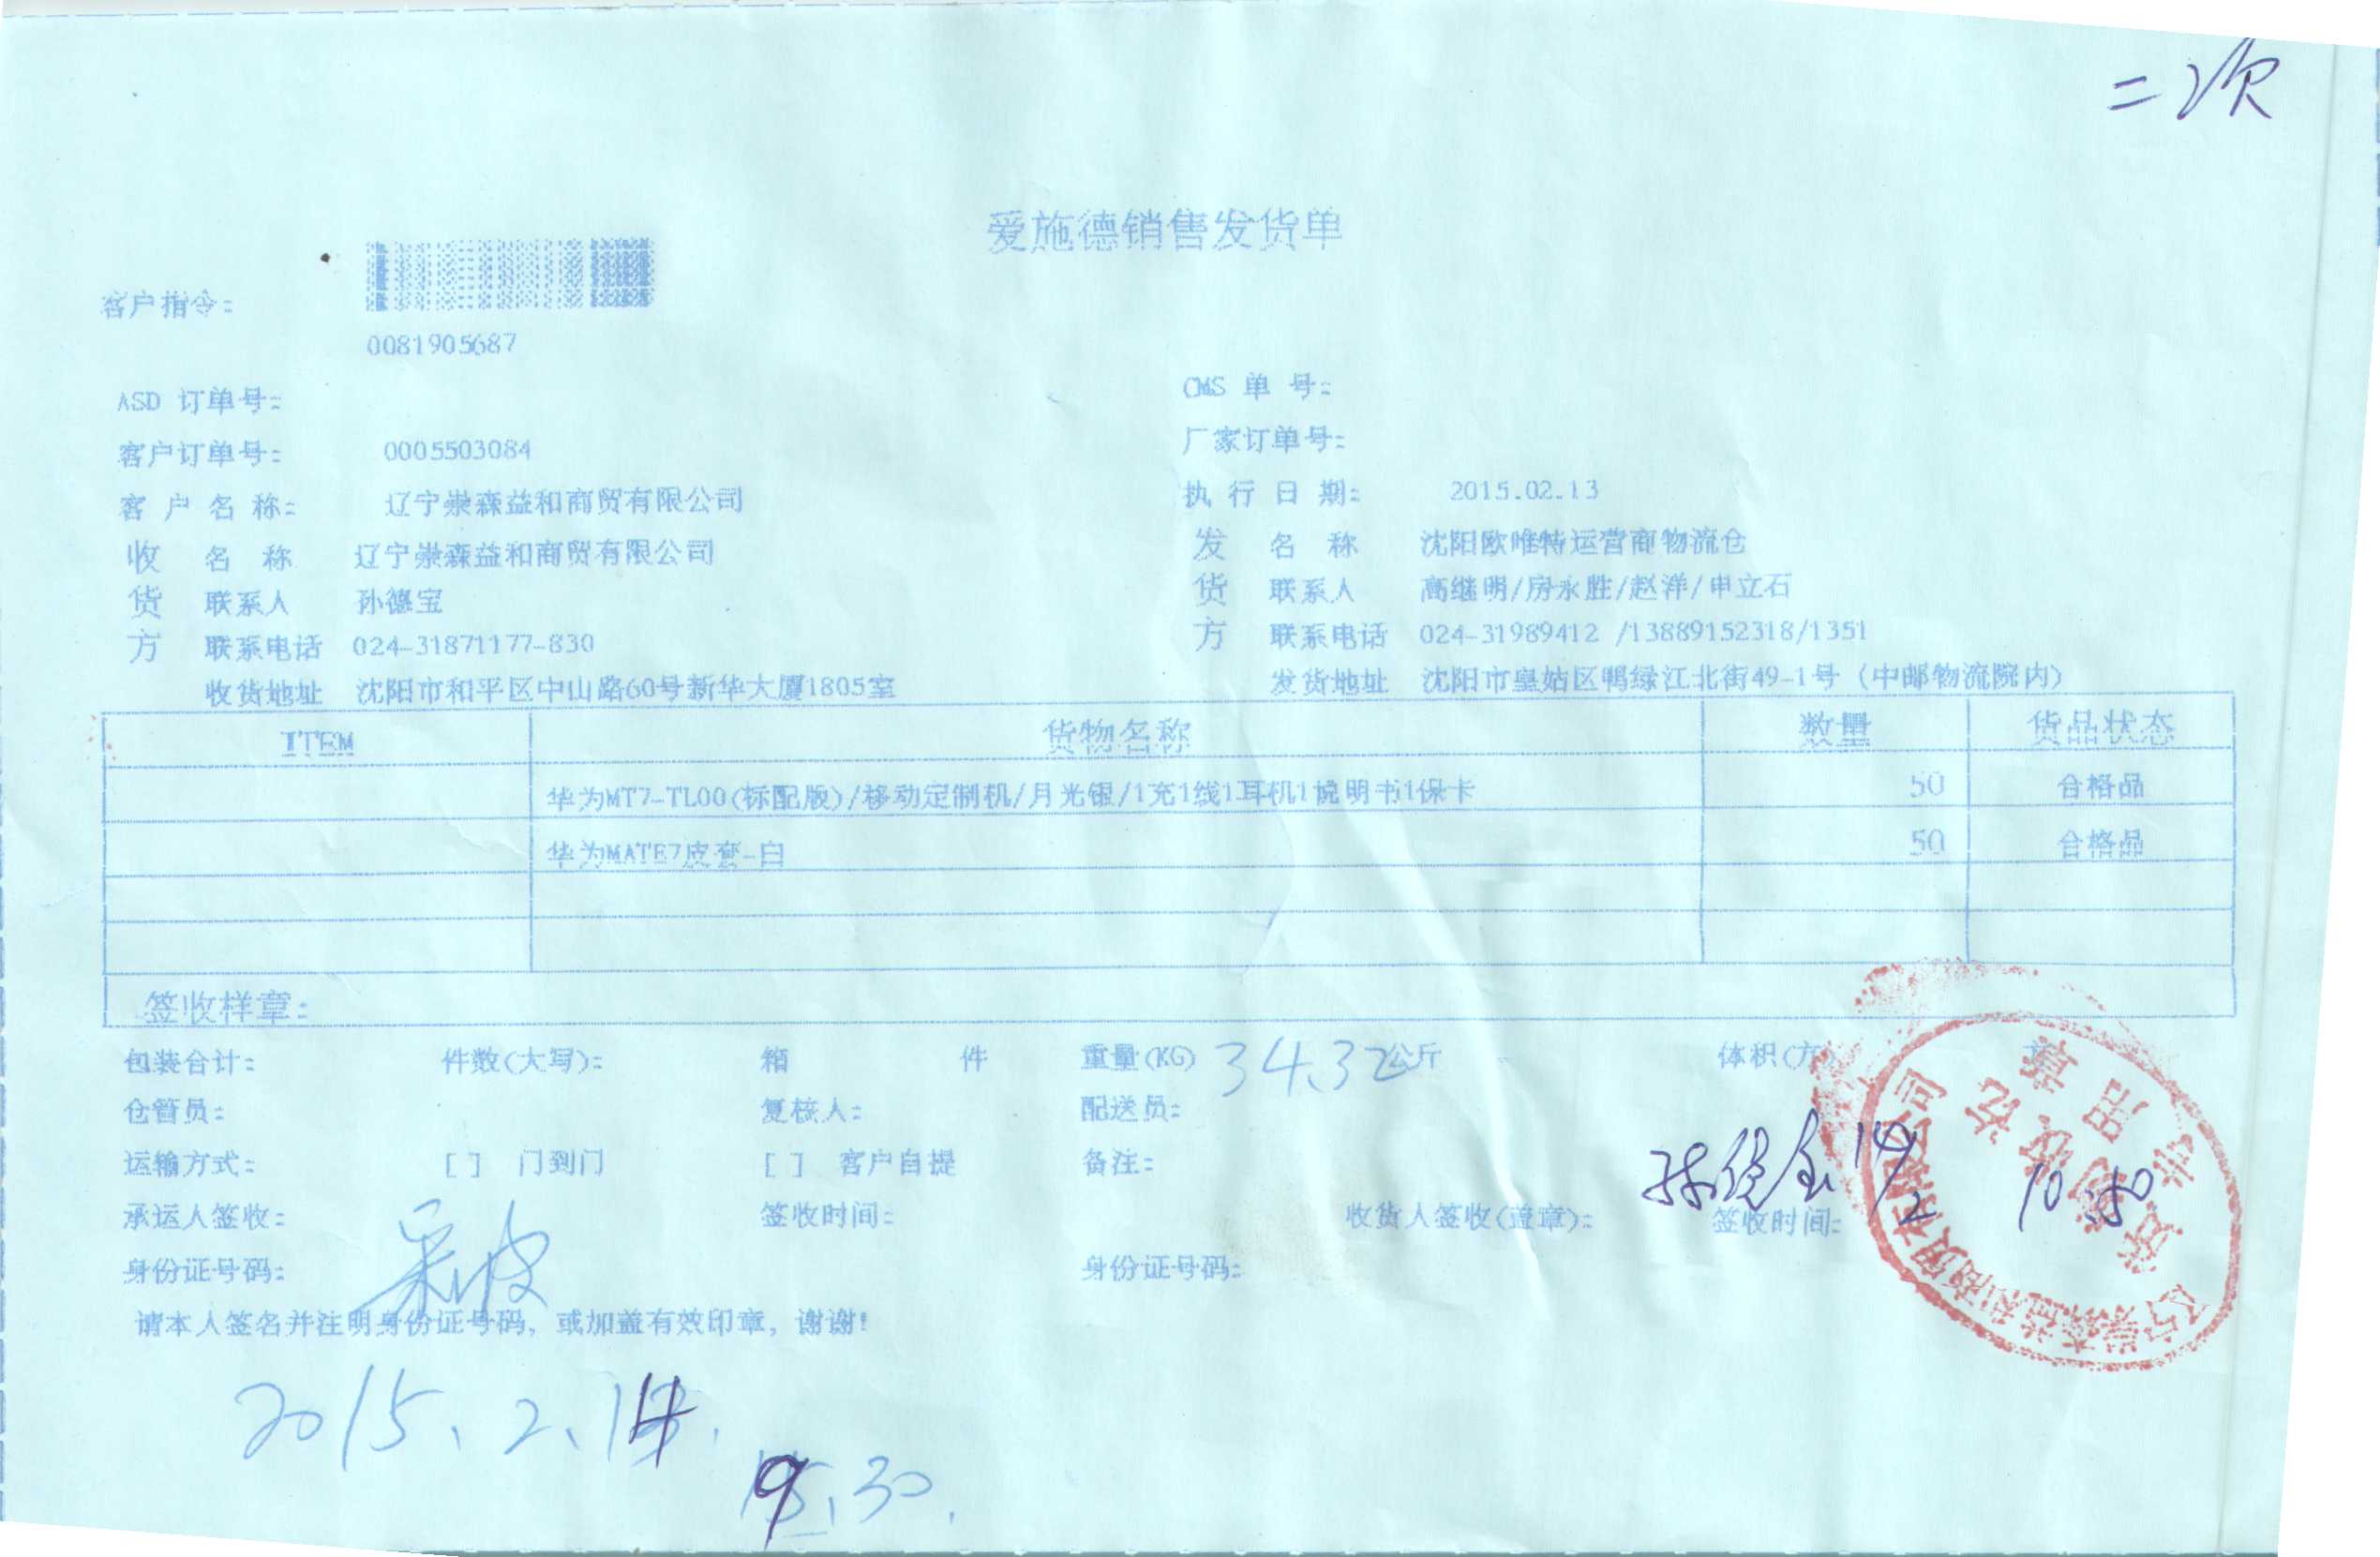 二次
爱施德销售发货单
客户指令:
0081905687
ASD 订单号:
CMS 单 号:
客户订单号: 0005503084
厂家订单号:
客 户 名 称: 辽宁崇森益和商贸有限公司
执 行 日 期: 2015.02.13
收货方
名 称 辽宁崇森益和商贸有限公司
联系人 孙德宝
联系电话 024-31871177-830
收货地址 沈阳市和平区中山路60号新华大厦1805室
发货方
名 称 沈阳欧唯特运营商物流仓
联系人 高继明/房永胜/赵洋/申立石
联系电话 024-31989412 /13889152318/1351
发货地址 沈阳市皇姑区鸭绿江北街49-1号 (中邮物流院内)
ITEM 货物名称 数量 货品状态
华为MT7-TL00(标配版)/移动定制机/月光银/1充1线1耳机1说明书1保卡 50 合格品
华为MATE7皮套-白 50 合格品
签收样章:
包装合计: 件数(大写): 箱 件 重量(KG) 34.32公斤 体积(方) 方
仓管员: 复核人: 配送员:
运输方式: [ ] 门到门 [ ] 客户自提 备注:
承运人签收: 签收时间: 收货人签收(盖章): 孙德宝 14/2 签收时间: 10:50
身份证号码: 身份证号码:
请本人签名并注明身份证号码, 或加盖有效印章, 谢谢!
2015.2.14.
9.30.
辽宁崇森益和商贸有限公司
货物收讫
专用章